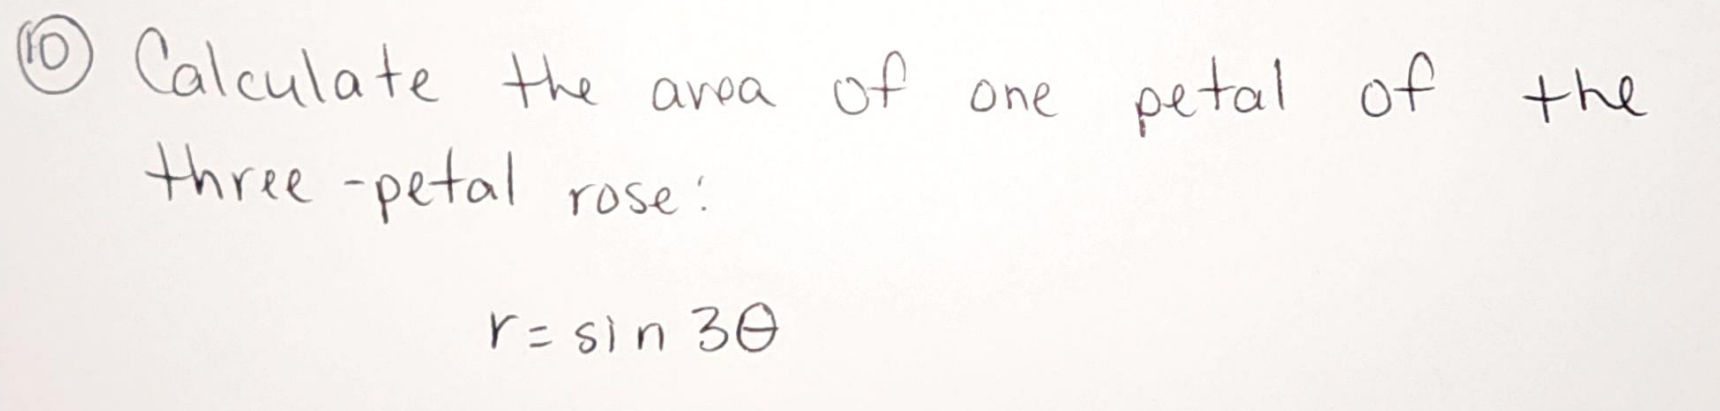 ⑩ Calculate the area of one petal of the
three-petal rose:
r = sin 3θ